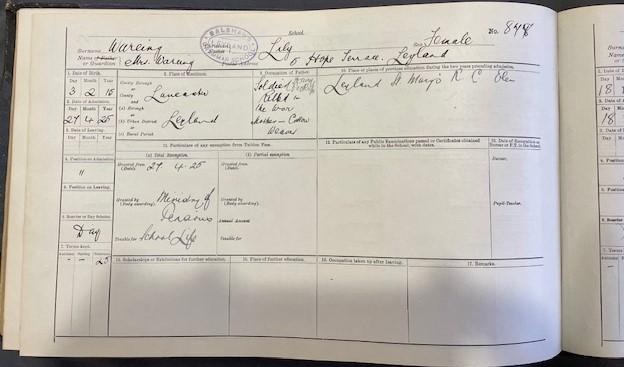 School. BALSHAW'S LEYLAND GRAMMAR SCHOOL No. 848
Surname Wareing Lily Sex Female
Name of Father or Guardian Mrs. Wareing 5 Hope Terrace. Leyland
1. Date of Birth. 8. Place of Residence. 9. Occupation of Father. 10. Place or places of previous education during the two years preceding admission.
Day Month Year County Borough Soldier Leyland St. Mary's R C Elem
3 2 15 or County Lancaster Killed in
2. Date of Admission. and the war
Day Month Year (a) Borough or
27 4 25 (b) Urban District Leyland Mother - Cotton
3. Date of Leaving. or Weaver
Day Month Year (c) Rural Parish
11. Particulars of any exemption from Tuition Fees. 12. Particulars of any Public Examinations passed or Certificates obtained while in the School, with dates.
(a) Total Exemption. (b) Partial exemption.
4. Position on Admission. Granted from (Date). 27 4 25 Granted from (Date). Bursar.
"
5. Position on Leaving. Granted by (Body awarding). Ministry of Pensions Granted by (Body awarding). Pupil-Teacher.
Annual Amount
6. Boarder or Day Scholar.
Day Tenable for School Life Tenable for
7. Terms kept.
Autumn Spring Summer 14. Scholarships or Exhibitions for further education. 15. Place of further education. 16. Occupation taken up after leaving. 17. Remarks.
- - 25